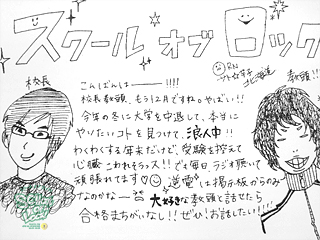 スクール オブ ロック
校長
こんばんは――!!!!
教頭!!
RN
北海道
校長教頭、もう12月ですねっやばい!!
今年の冬に大学を中退して、本当に
やりたいコトを見つけて、浪人中!!
わくわくする年末だけど、受験を控えて
心臓こわれそうっス!!でも毎日ラジオ聴いて
頑張れてます 逆電は掲示板からのみ
なのかな 大好きな教頭と話せたら
合格まちがいなし!!ぜひ!お話したい!!!!